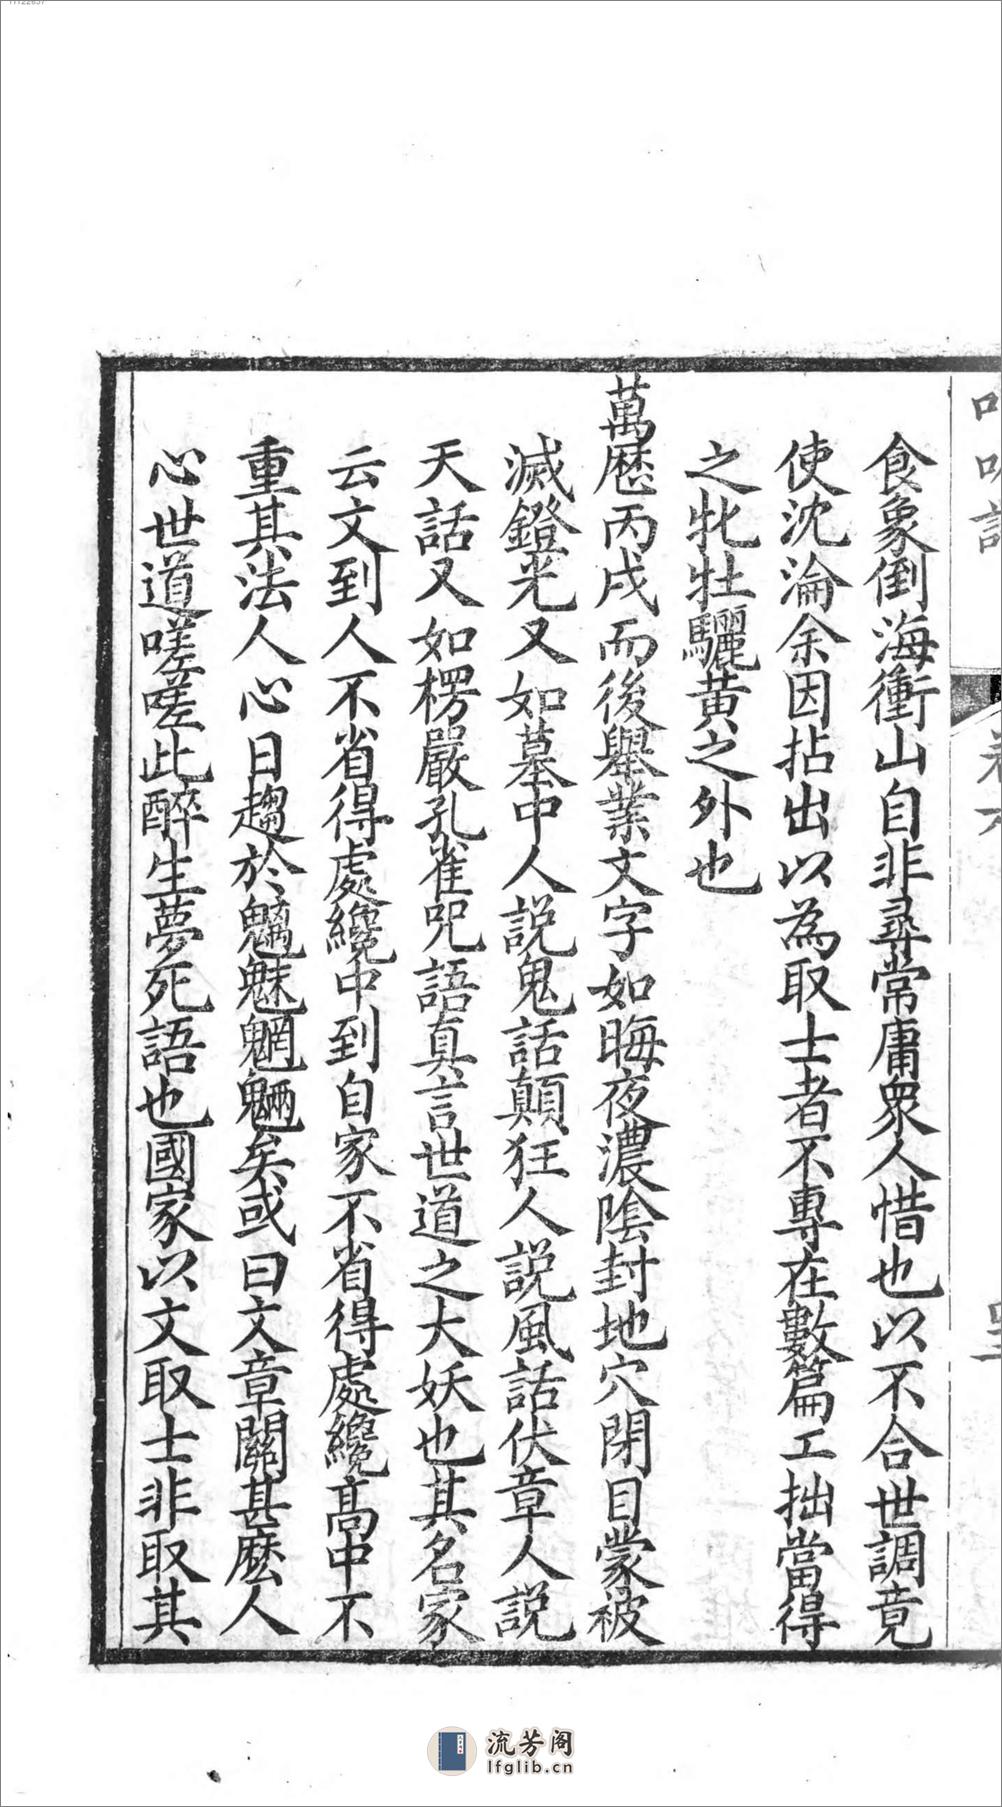 食象倒海衝山自非尋常庸衆人惜也以不合世調竟
使沈淪余因拈出以為取士者不專在數篇工拙當得
之牝牡驪黃之外也
萬歷丙戌而後舉業文字如晦夜濃陰封地穴閉目蒙被
滅鐙光又如墓中人説鬼話顛狂人説風話伏章人説
天話又如楞嚴孔雀咒語真言世道之大妖也其名家
云文到人不省得處纔中到自家不省得處纔高中不
重其法人心日趨於魑魅魍魎矣或曰文章關甚麼人
心世道嗟嗟此醉生夢死語也國家以文取士非取其
流芳阁
lfglib.cn